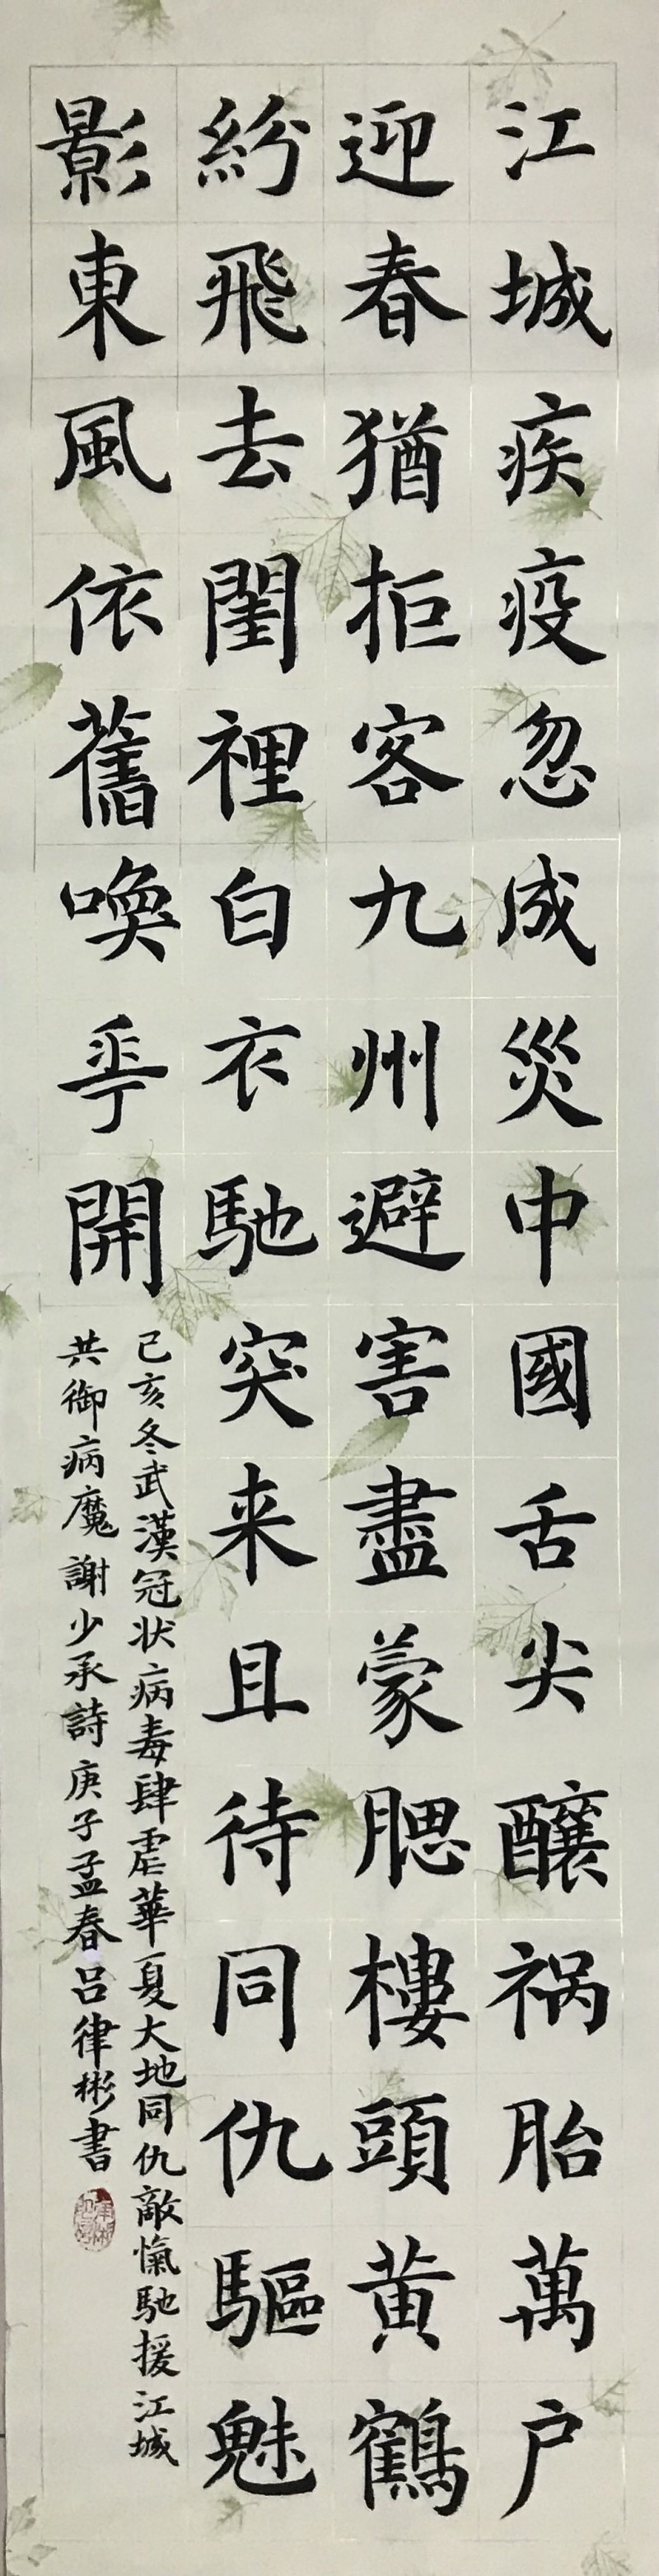 江城疾疫忽成災中國舌尖釀祸胎萬户
迎春猶拒客九州避害盡蒙腮樓頭黄鶴
紛飛去閨裡白衣馳突来且待同仇驅魅
影東風依舊喚𠌶開
己亥冬武漢冠状病毒肆虐華夏大地同仇敵愾馳援江城
共御病魔謝少承詩庚子孟春吕律彬書